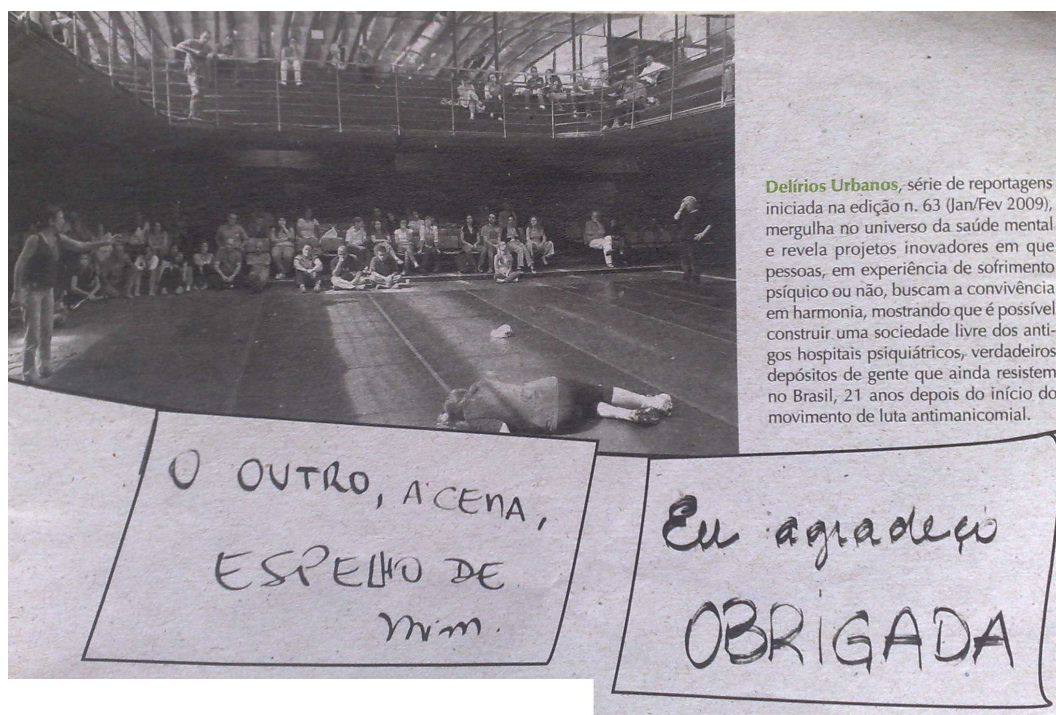 Delírios Urbanos, série de reportagens
iniciada na edição n. 63 (Jan/Fev 2009),
mergulha no universo da saúde mental
e revela projetos inovadores em que
pessoas, em experiência de sofrimento
psíquico ou não, buscam a convivência
em harmonia, mostrando que é possível
construir uma sociedade livre dos anti-
gos hospitais psiquiátricos, verdadeiros
depósitos de gente que ainda resistem
no Brasil, 21 anos depois do início do
movimento de luta antimanicomial.
O OUTRO, A CENA,
ESPELHO DE
mim.
Eu agradeço
OBRIGADA